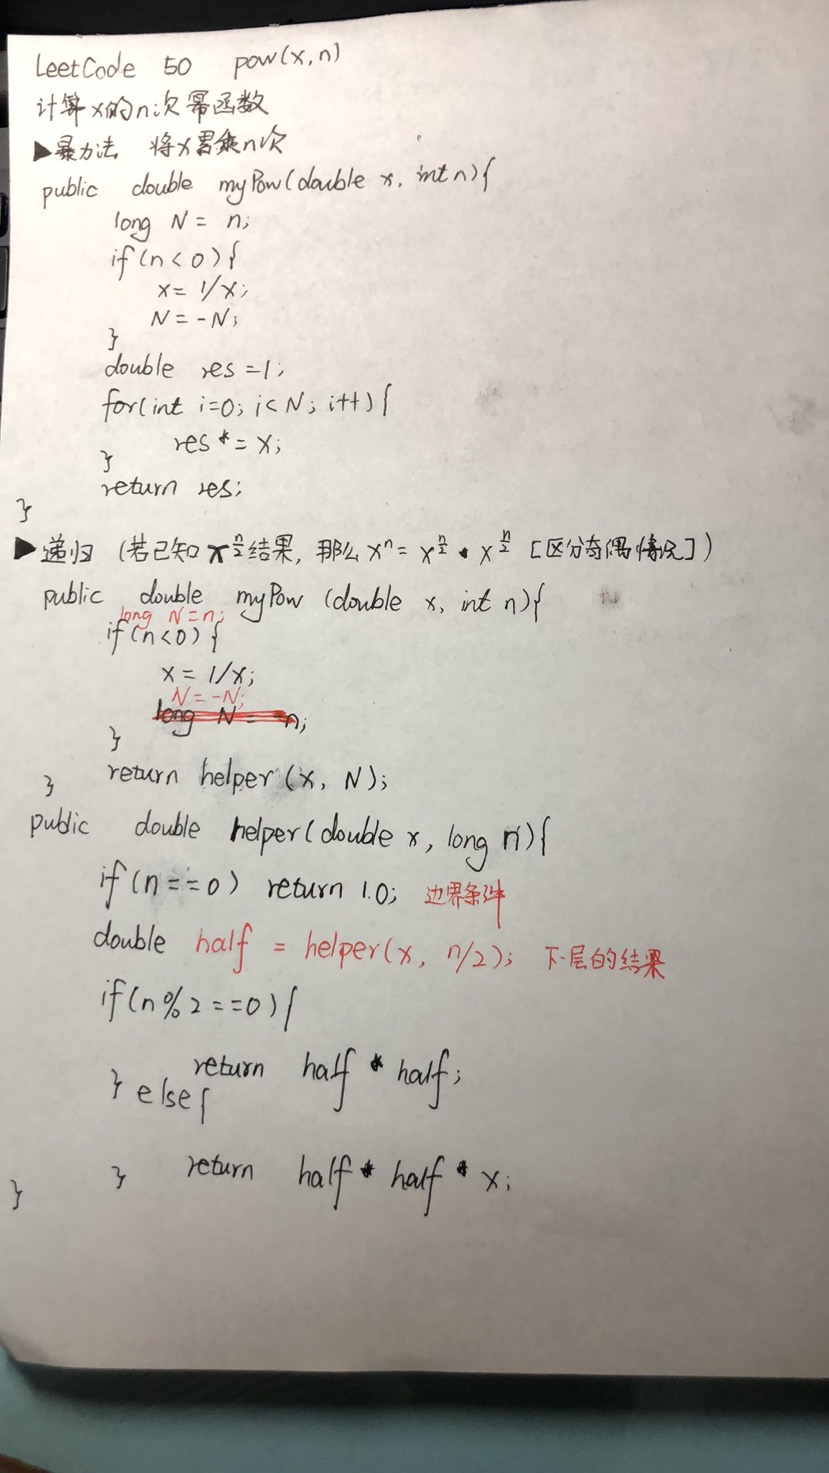 LeetCode 50 pow(x,n)
计算x的n次幂函数
▶暴力法 将x累乘n次
public double myPow(double x, int n){
long N = n;
if(n<0){
x= 1/x;
N = -N;
}
double res =1;
for(int i=0; i<N; i++){
res *= x;
}
return res;
}
▶递归 (若已知 x^{n/2}结果, 那么 x^n = x^{n/2} • x^{n/2} [区分奇偶情况])
public double myPow (double x, int n){
long N=n;
if(n<0){
x = 1/x;
N = -N;
long N = -n;
}
return helper (x, N);
}
public double helper(double x, long n){
if(n==0) return 1.0; 边界条件
double half = helper(x, n/2); 下层的结果
if(n%2==0){
return half * half;
} else{
return half * half * x;
}
}